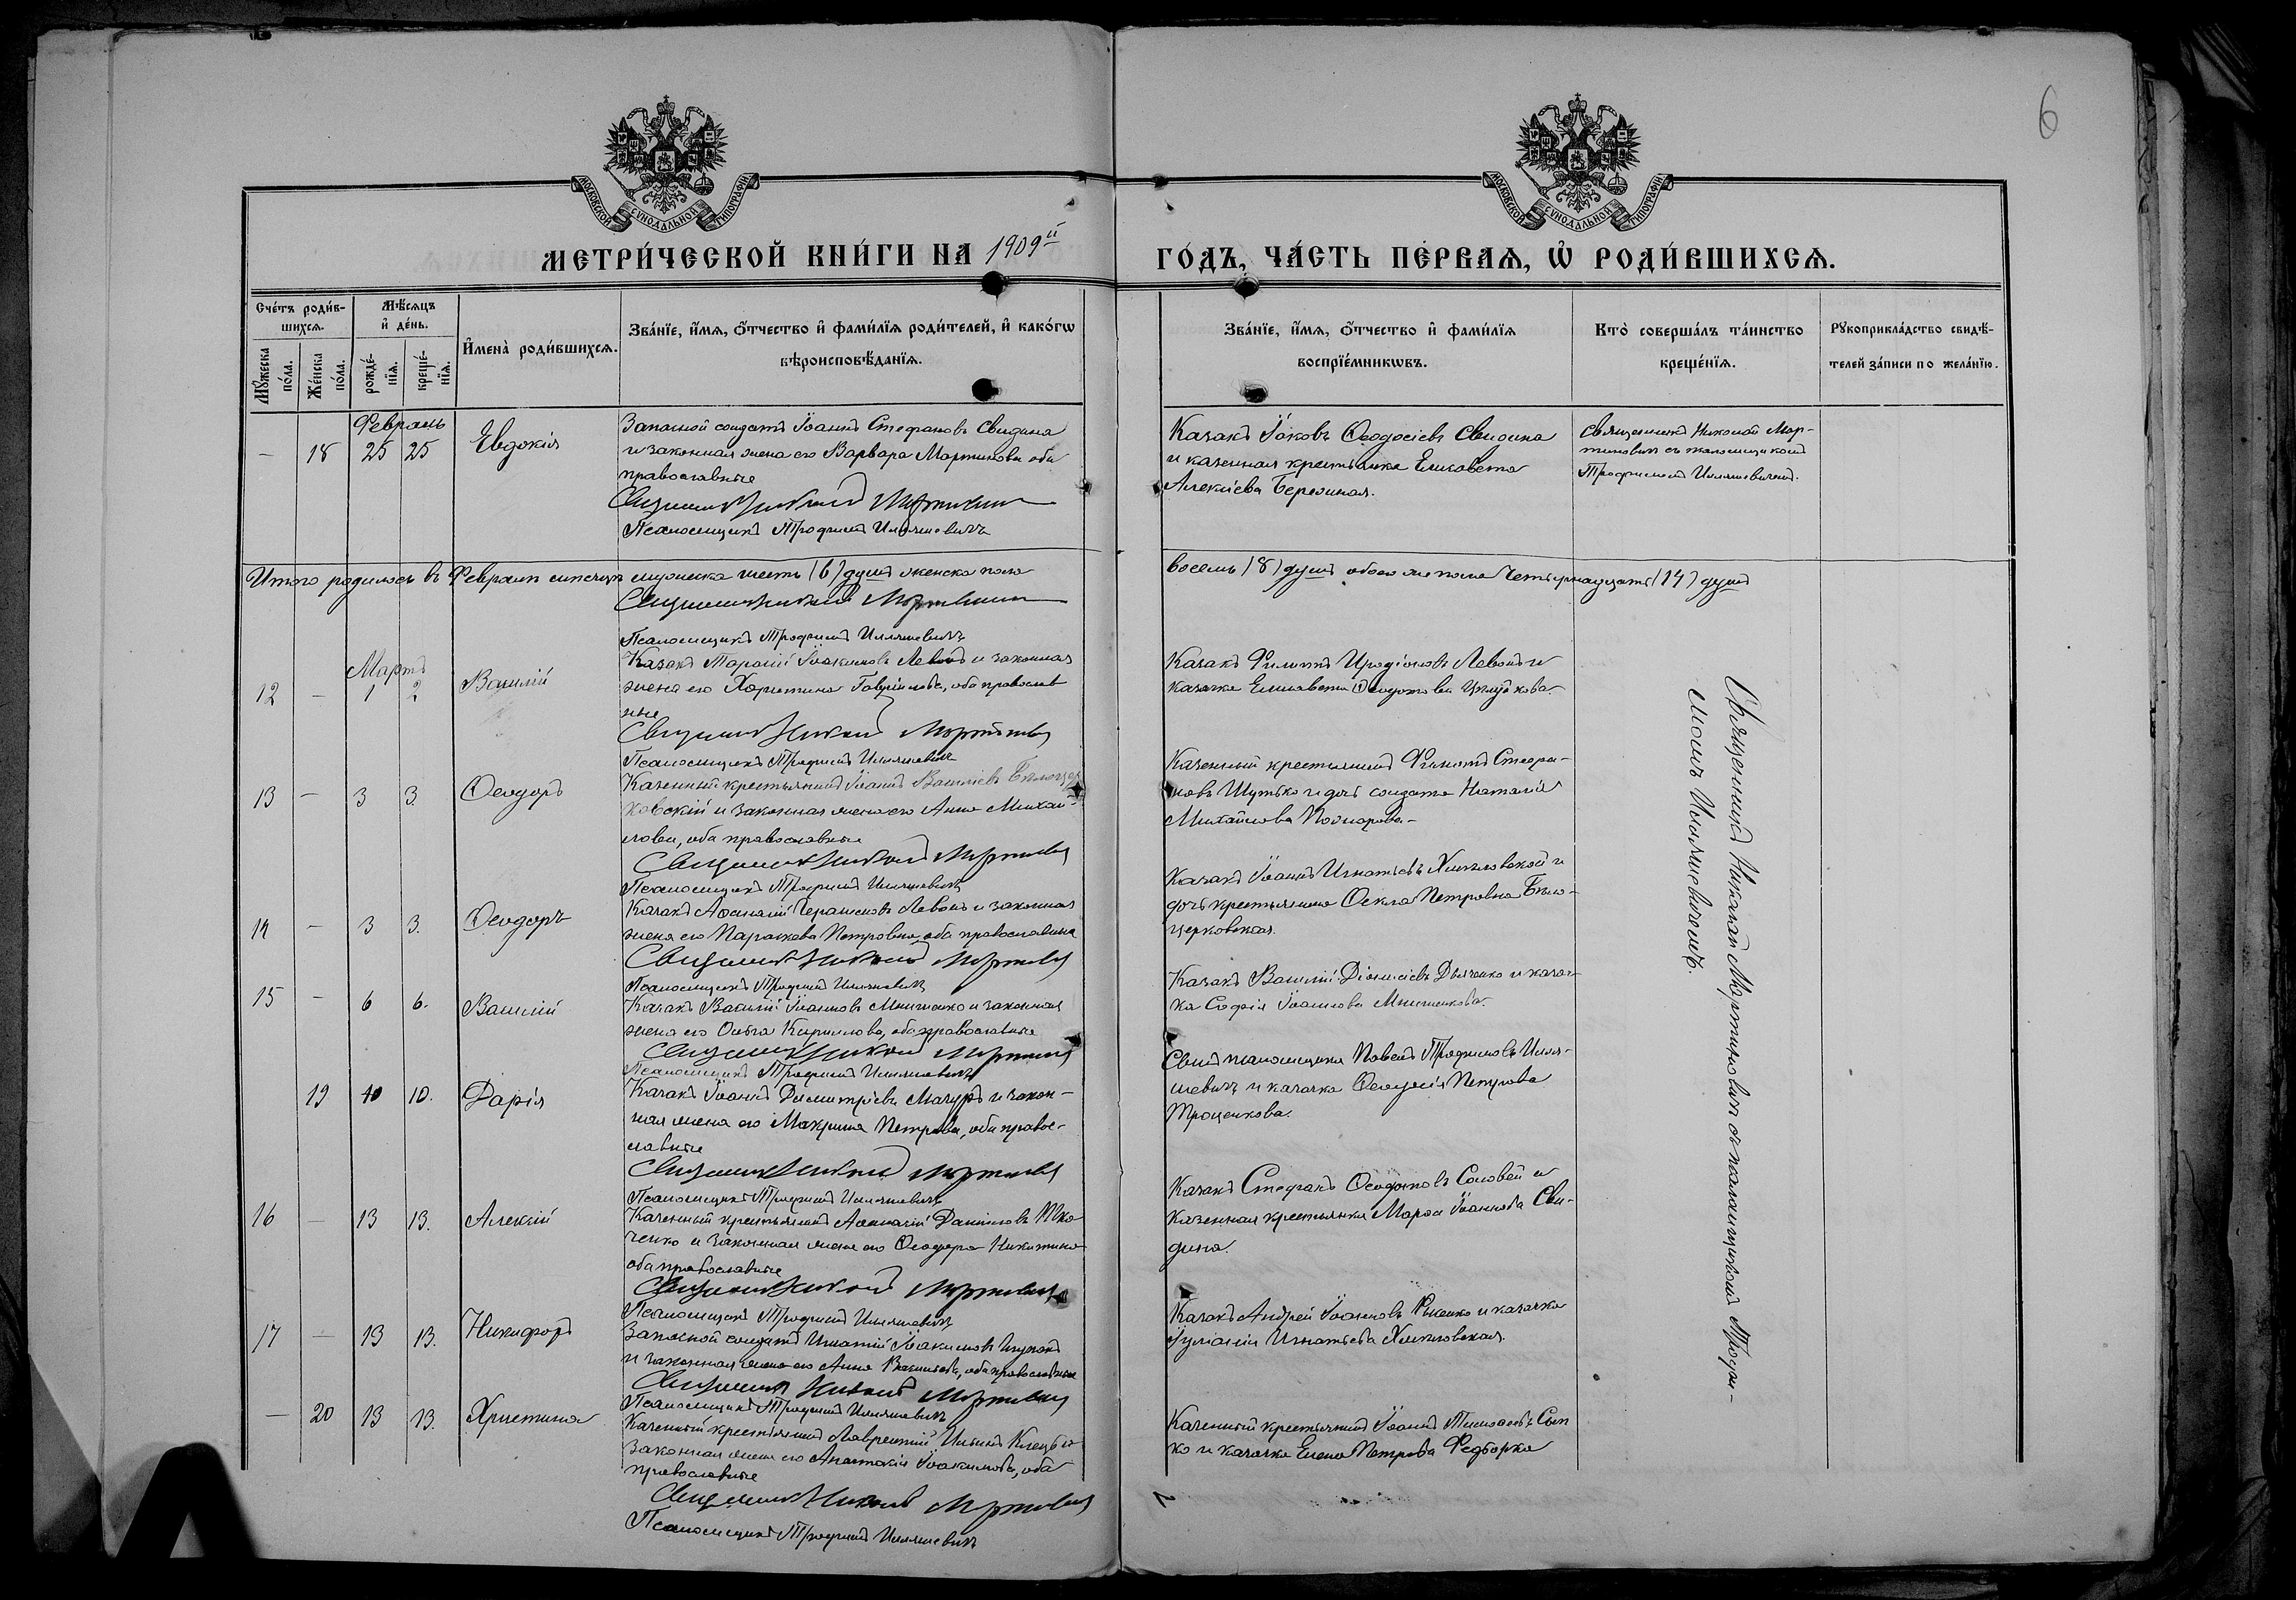 6
МОСКОВСКОЙ СѴНОДАЛЬНОЙ ТИПОГРАФІИ
МОСКОВСКОЙ СѴНОДАЛЬНОЙ ТИПОГРАФІИ
МЕТРИ́ЧЕСКОЙ КНИ́ГИ НА 1909й ГО́ДЪ, ЧА́СТЬ ПЕ́РВАѦ, Ѡ҆ РОДИ́ВШИХСѦ.
Сче́тъ роди́в-
шихсѧ.
Мꙋ́жеска
по́ла.
Же́нска
по́ла.
Мѣ́сѧцъ
и҆ де́нь.
рожде́-
нїѧ.
креще́-
нїѧ.
И҆мена̀ роди́вшихсѧ.
Зва́нїе, и҆́мѧ, ѻ҆́тчество и҆ фами́лїѧ роди́телей, и҆ како́гѡ
вѣроисповѣ́данїѧ.
Зва́нїе, и҆́мѧ, ѻ҆́тчество и҆ фами́лїѧ
воспрїе́мникѡвъ.
Кто̀ соверша́лъ та́инство
креще́нїѧ.
Рꙋкоприкла́дство свидѣ́-
телей за́писи по жела́нїю.
Февраль
— 18 25 25 Евдокія
Запасной солдатъ Іоаннъ Стефановъ Свидина
и законная жена его Варвара Мартинова оба
православные
Священникъ Николай Мартинович
Псаломщикъ Трофимъ Илляшевичъ
Казакъ Іаковъ Ѳеодосіевъ Свидина
и казенная крестьянка Елисавета
Алексіева Березиная.
Священникъ Николай Мар-
тиновичъ съ псаломщикомъ
Трофимомъ Илляшевичемъ.
Итого родилось въ Февралѣ мѣсяцѣ мужеска шесть (6) душъ женска пола восемь (8) душъ обоего же пола четырнадцать (14) душъ
Священникъ Николай Мартинович
Псаломщикъ Трофимъ Илляшевичъ
Мартъ
12 — 1 2 Василій
Казакъ Тарасій Іоакимовъ Левонъ и законная
жена его Христина Гавріилова, оба православ
ные
Священникъ Николай Мартинович
Псаломщикъ Трофимъ Илляшевичъ
Казакъ Филиппъ Иродіоновъ Левонъ и
казачка Елисавета Ѳеодотова
13 — 3 3. Ѳеодоръ
Казенный крестьянинъ Іоаннъ Василіевъ Бѣлоцер
ковскій и законная жена его Анна Михаи-
лова, оба православные
Священникъ Николай Мартинович
Псаломщикъ Трофимъ Илляшевичъ
Казенный крестьянинъ Филиппъ Стефа-
новъ Шутько и дочь солдата Наталія
Михайлова
14 — 3 3. Ѳеодоръ
Казакъ Аѳанасій Герасимовъ Левонъ и законная
жена его Параскева Петровна, оба православные
Священникъ Николай Мартинович
Псаломщикъ Трофимъ Илляшевичъ
Казакъ Іоаннъ Игнатьевъ Хмѣловской и
дочь крестьянина Ѳекла Петровна Бѣло-
церковская.
15 — 6 6. Василій
Казакъ Василій Іоанновъ и законная
жена его Ольга Кириллова, оба православные
Священникъ Николай Мартинович
Псаломщикъ Трофимъ Илляшевичъ
Казакъ Василій Діонисіевъ Дьяченко и казач-
ка Софія Іоаннова
19 10 10. Дарія
Казакъ Іоаннъ Димитріевъ Мачуръ и закон-
ная жена его Макрина Петрова, оба право-
славные
Священникъ Николай Мартинович
Псаломщикъ Трофимъ Илляшевичъ
Сынъ псаломщика Павелъ Трофимовъ Илля-
шевичъ и казачка Ѳеодосія Петрова
Троценкова.
16 — 13 13. Алексій
Казенный крестьянинъ Аѳанасій Даниловъ Тка
ченко и законная жена его Ѳеодора Никитина
оба православные
Священникъ Николай Мартинович
Псаломщикъ Трофимъ Илляшевичъ
Казакъ Стефанъ Ѳеодотовъ Соловей и
казенная крестьянка Марѳа Іоаннова Сви-
дина.
17 — 13 13. Никифоръ
Запасной солдатъ Игнатій Іоакимовъ
и законная жена его Анна Василіева, оба православные
Священникъ Николай Мартинович
Псаломщикъ Трофимъ Илляшевичъ
Казакъ Андрей Іоанновъ и казачка
Іуліанія Игнатьева Хмѣловская.
— 20 13 13. Христина
Казенный крестьянинъ Лаврентій Ильинъ и
законная жена его Анастасія Іоакимова, оба
православные
Священникъ Николай Мартинович
Псаломщикъ Трофимъ Илляшевичъ
Казенный крестьянинъ Іоаннъ
ко и казачка Елена Петрова Федборка
Священникъ Николай Мартиновичъ съ псаломщикомъ Трофи-
момъ Илляшевичемъ.